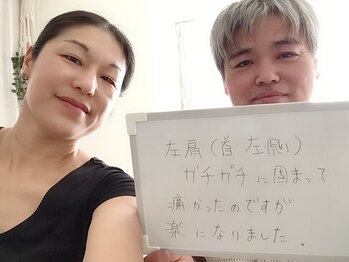 左肩(首 左側)
ガチガチに固まって
痛かったのですが
楽になりました.